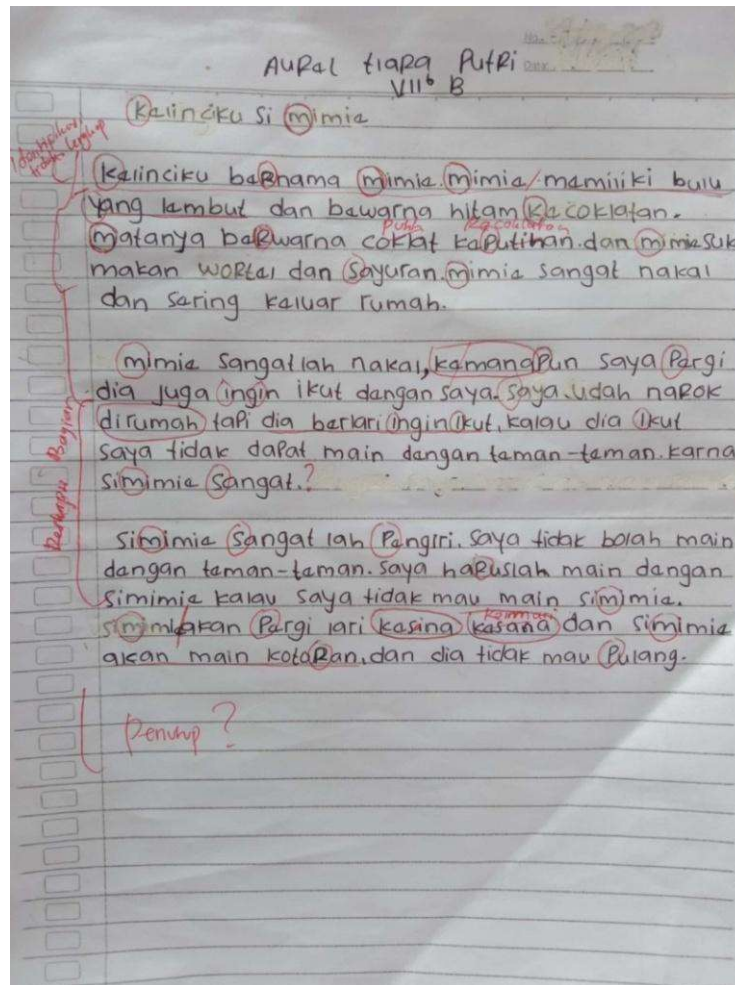 AURel tiaRa PutRi
VII6 B
Kelinciku Si mimie
Identifikasi
tidak lengkap
Kelinciku beRnama mimie. mimie/memiliki bulu
yang lembut dan bewarna hitam Kecoklatan.
putih kecoklatan
matanya beRwarna coklat kePutihan. dan mimie suk
makan woRtel dan Sayuran. mimie sangat nakal
dan sering keluar rumah.
mimie sangatlah nakal, kemanaPun saya Pergi
dia juga ingin ikut dengan saya. saya. udah naRok
dirumah taPi dia berlari ingin ikut, kalau dia ikut
saya tidak daPat main dengan teman-teman. karna
simimie Sangat.?
Bagian
simimie Sangat lah Pengiri. saya tidak boleh main
dengan teman-teman. saya haRuslah main dengan
simimie kalau saya tidak mau main simimie.
simimi akan Pergi lari kesina kesana dan simimie
akan main kotoRan. dan dia tidak mau Pulang.
Penutup ?